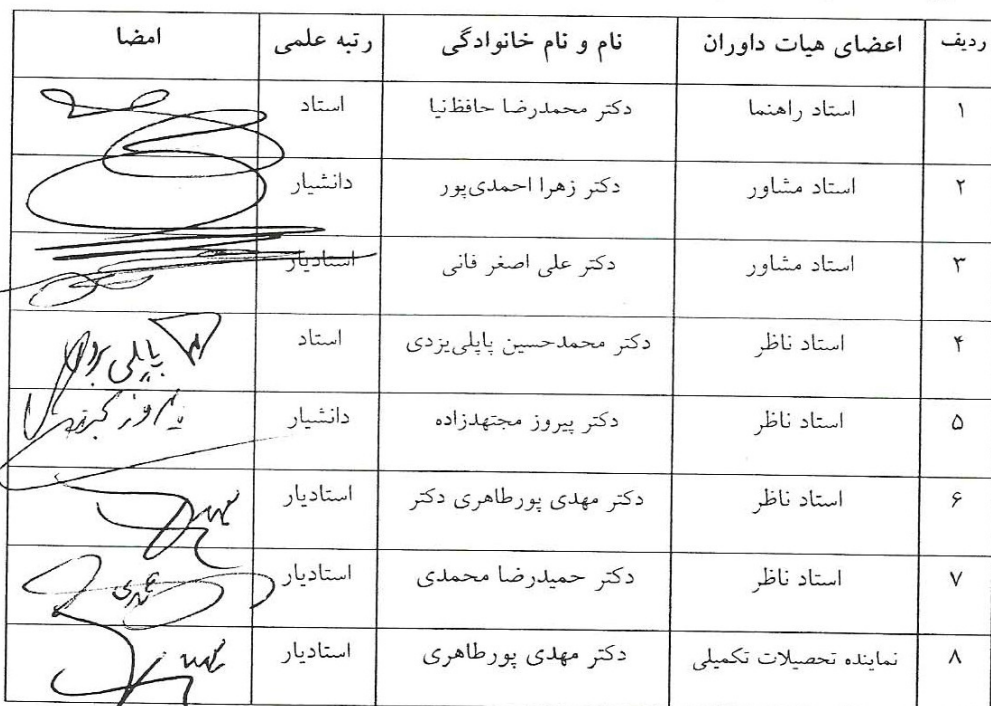 ردیف اعضای هیات داوران نام و نام خانوادگی رتبه علمی امضا
۱ استاد راهنما دکتر محمدرضا حافظ‌نیا استاد
۲ استاد مشاور دکتر زهرا احمدی‌پور دانشیار
۳ استاد مشاور دکتر علی اصغر فانی استادیار
۴ استاد ناظر دکتر محمدحسین پاپلی‌یزدی استاد
۵ استاد ناظر دکتر پیروز مجتهدزاده دانشیار
۶ استاد ناظر دکتر مهدی پورطاهری دکتر استادیار
۷ استاد ناظر دکتر حمیدرضا محمدی استادیار
۸ نماینده تحصیلات تکمیلی دکتر مهدی پورطاهری استادیار